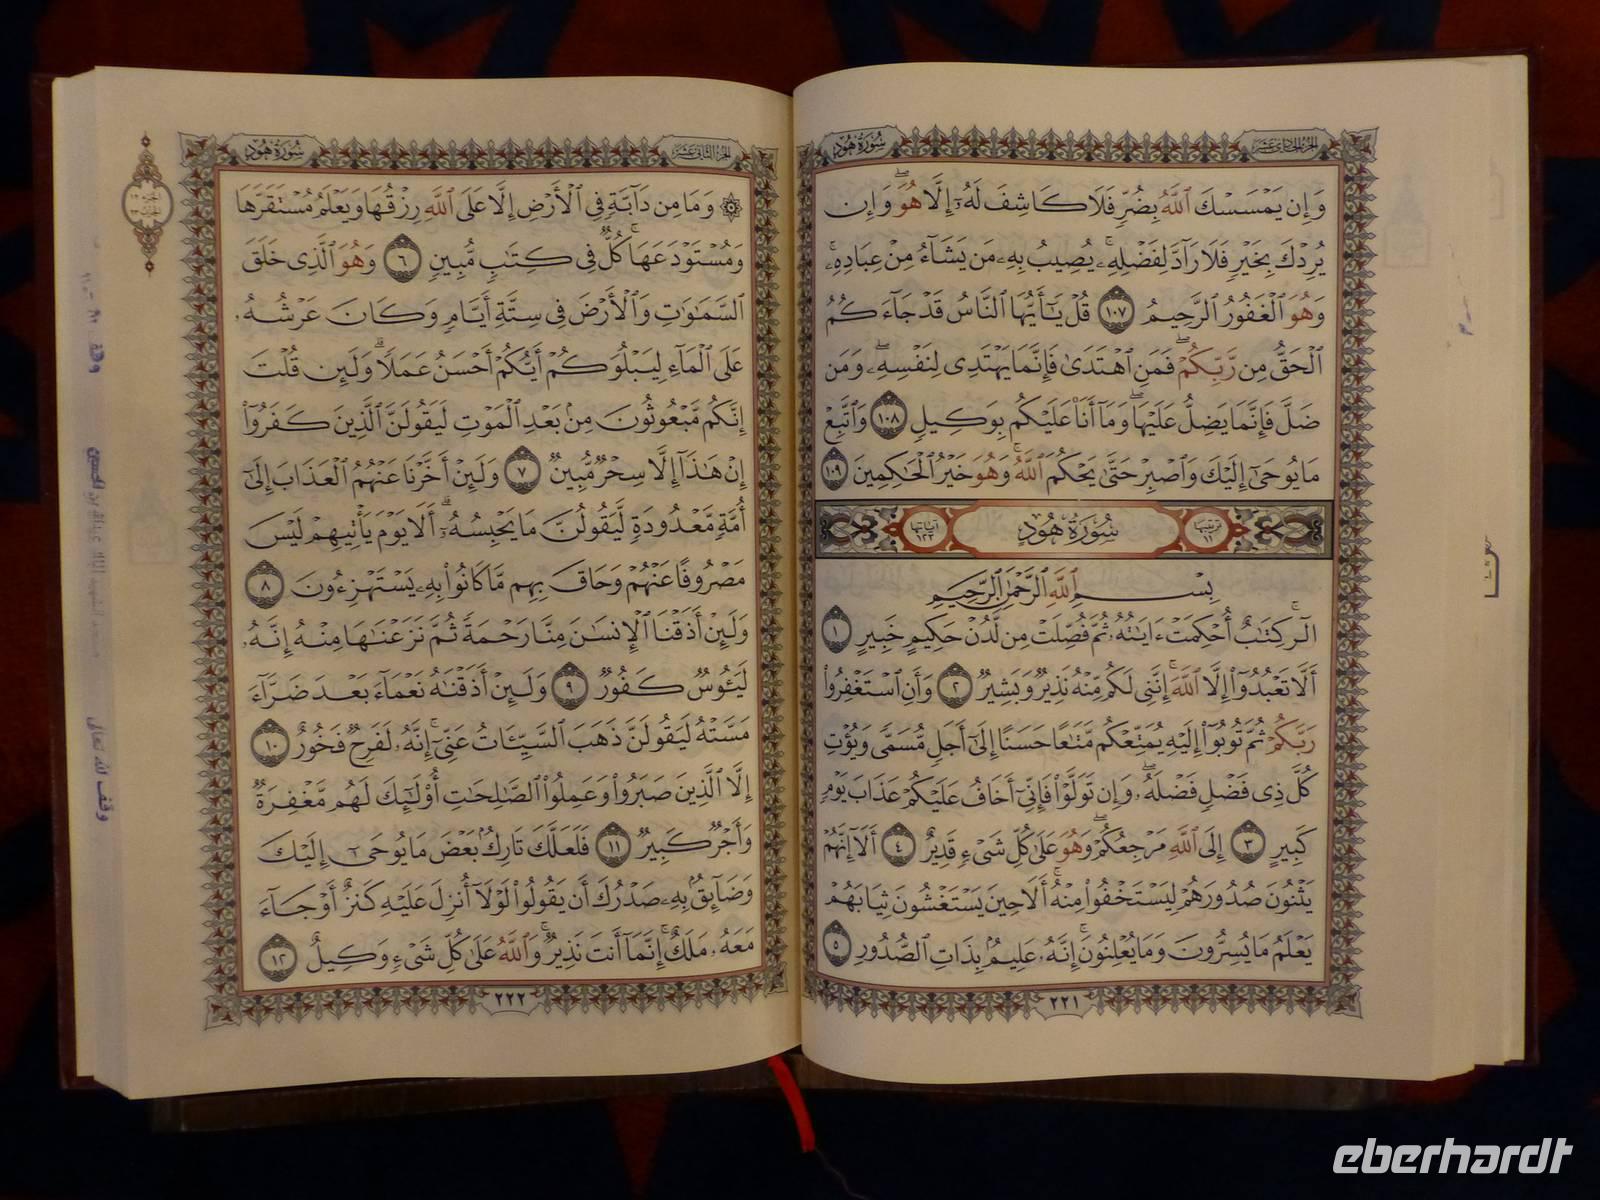 سُورَةُ هُودٍ
الجُزْءُ الحَادِي عَشَرَ
وَإِن يَمْسَسْكَ ٱللَّهُ بِضُرٍّ فَلَا كَاشِفَ لَهُۥٓ إِلَّا هُوَۖ وَإِن
يُرِدْكَ بِخَيْرٍ فَلَا رَآدَّ لِفَضْلِهِۦۚ يُصِيبُ بِهِۦ مَن يَشَآءُ مِنْ عِبَادِهِۦۚ
وَهُوَ ٱلْغَفُورُ ٱلرَّحِيمُ ١٠٧ قُلْ يَٰٓأَيُّهَا ٱلنَّاسُ قَدْ جَآءَكُمُ
ٱلْحَقُّ مِن رَّبِّكُمْۖ فَمَنِ ٱهْتَدَىٰ فَإِنَّمَا يَهْتَدِى لِنَفْسِهِۦۖ وَمَن
ضَلَّ فَإِنَّمَا يَضِلُّ عَلَيْهَاۖ وَمَآ أَنَا۠ عَلَيْكُم بِوَكِيلٍ ١٠٨ وَٱتَّبِعْ
مَا يُوحَىٰٓ إِلَيْكَ وَٱصْبِرْ حَتَّىٰ يَحْكُمَ ٱللَّهُۚ وَهُوَ خَيْرُ ٱلْحَٰكِمِينَ ١٠٩
ترتيبها ١١ سُورَةُ هُودٍ آياتها ١٢٣
بِسْمِ ٱللَّهِ ٱلرَّحْمَٰنِ ٱلرَّحِيمِ
الٓرۚ كِتَٰبٌ أُحْكِمَتْ ءَايَٰتُهُۥ ثُمَّ فُصِّلَتْ مِن لَّدُنْ حَكِيمٍ خَبِيرٍ ١
أَلَّا تَعْبُدُوٓا۟ إِلَّا ٱللَّهَۚ إِنَّنِى لَكُم مِّنْهُ نَذِيرٌ وَبَشِيرٌ ٢ وَأَنِ ٱسْتَغْفِرُوا۟
رَبَّكُمْ ثُمَّ تُوبُوٓا۟ إِلَيْهِ يُمَتِّعْكُم مَّتَٰعًا حَسَنًا إِلَىٰٓ أَجَلٍ مُّسَمًّى وَيُؤْتِ
كُلَّ ذِى فَضْلٍ فَضْلَهُۥۖ وَإِن تَوَلَّوْا۟ فَإِنِّىٓ أَخَافُ عَلَيْكُمْ عَذَابَ يَوْمٍ
كَبِيرٍ ٣ إِلَى ٱللَّهِ مَرْجِعُكُمْۖ وَهُوَ عَلَىٰ كُلِّ شَىْءٍ قَدِيرٌ ٤ أَلَآ إِنَّهُمْ
يَثْنُونَ صُدُورَهُمْ لِيَسْتَخْفُوا۟ مِنْهُۚ أَلَا حِينَ يَسْتَغْشُونَ ثِيَابَهُمْ
يَعْلَمُ مَا يُسِرُّونَ وَمَا يُعْلِنُونَۚ إِنَّهُۥ عَلِيمٌۢ بِذَاتِ ٱلصُّدُورِ ٥
٢٢١
الجُزْءُ الثَّانِي عَشَرَ
سُورَةُ هُودٍ
۞ وَمَا مِن دَآبَّةٍ فِى ٱلْأَرْضِ إِلَّا عَلَى ٱللَّهِ رِزْقُهَا وَيَعْلَمُ مُسْتَقَرَّهَا
وَمُسْتَوْدَعَهَاۚ كُلٌّ فِى كِتَٰبٍ مُّبِينٍ ٦ وَهُوَ ٱلَّذِى خَلَقَ
ٱلسَّمَٰوَٰتِ وَٱلْأَرْضَ فِى سِتَّةِ أَيَّامٍ وَكَانَ عَرْشُهُۥ
عَلَى ٱلْمَآءِ لِيَبْلُوَكُمْ أَيُّكُمْ أَحْسَنُ عَمَلًاۗ وَلَئِن قُلْتَ
إِنَّكُم مَّبْعُوثُونَ مِنۢ بَعْدِ ٱلْمَوْتِ لَيَقُولَنَّ ٱلَّذِينَ كَفَرُوٓا۟
إِنْ هَٰذَآ إِلَّا سِحْرٌ مُّبِينٌ ٧ وَلَئِنْ أَخَّرْنَا عَنْهُمُ ٱلْعَذَابَ إِلَىٰٓ
أُمَّةٍ مَّعْدُودَةٍ لَّيَقُولُنَّ مَا يَحْبِسُهُۥٓۗ أَلَا يَوْمَ يَأْتِيهِمْ لَيْسَ
مَصْرُوفًا عَنْهُمْ وَحَاقَ بِهِم مَّا كَانُوا۟ بِهِۦ يَسْتَهْزِءُونَ ٨
وَلَئِنْ أَذَقْنَا ٱلْإِنسَٰنَ مِنَّا رَحْمَةً ثُمَّ نَزَعْنَٰهَا مِنْهُ إِنَّهُۥ
لَيَـُٔوسٌ كَفُورٌ ٩ وَلَئِنْ أَذَقْنَٰهُ نَعْمَآءَ بَعْدَ ضَرَّآءَ
مَسَّتْهُ لَيَقُولَنَّ ذَهَبَ ٱلسَّيِّـَٔاتُ عَنِّىٓۚ إِنَّهُۥ لَفَرِحٌ فَخُورٌ ١٠
إِلَّا ٱلَّذِينَ صَبَرُوا۟ وَعَمِلُوا۟ ٱلصَّٰلِحَٰتِ أُو۟لَٰٓئِكَ لَهُم مَّغْفِرَةٌ
وَأَجْرٌ كَبِيرٌ ١١ فَلَعَلَّكَ تَارِكٌۢ بَعْضَ مَا يُوحَىٰٓ إِلَيْكَ
وَضَآئِقٌۢ بِهِۦ صَدْرُكَ أَن يَقُولُوا۟ لَوْلَآ أُنزِلَ عَلَيْهِ كَنزٌ أَوْ جَآءَ
مَعَهُۥ مَلَكٌۚ إِنَّمَآ أَنتَ نَذِيرٌۚ وَٱللَّهُ عَلَىٰ كُلِّ شَىْءٍ وَكِيلٌ ١٢
٢٢٢
وقف لله تعالى
eberhardt